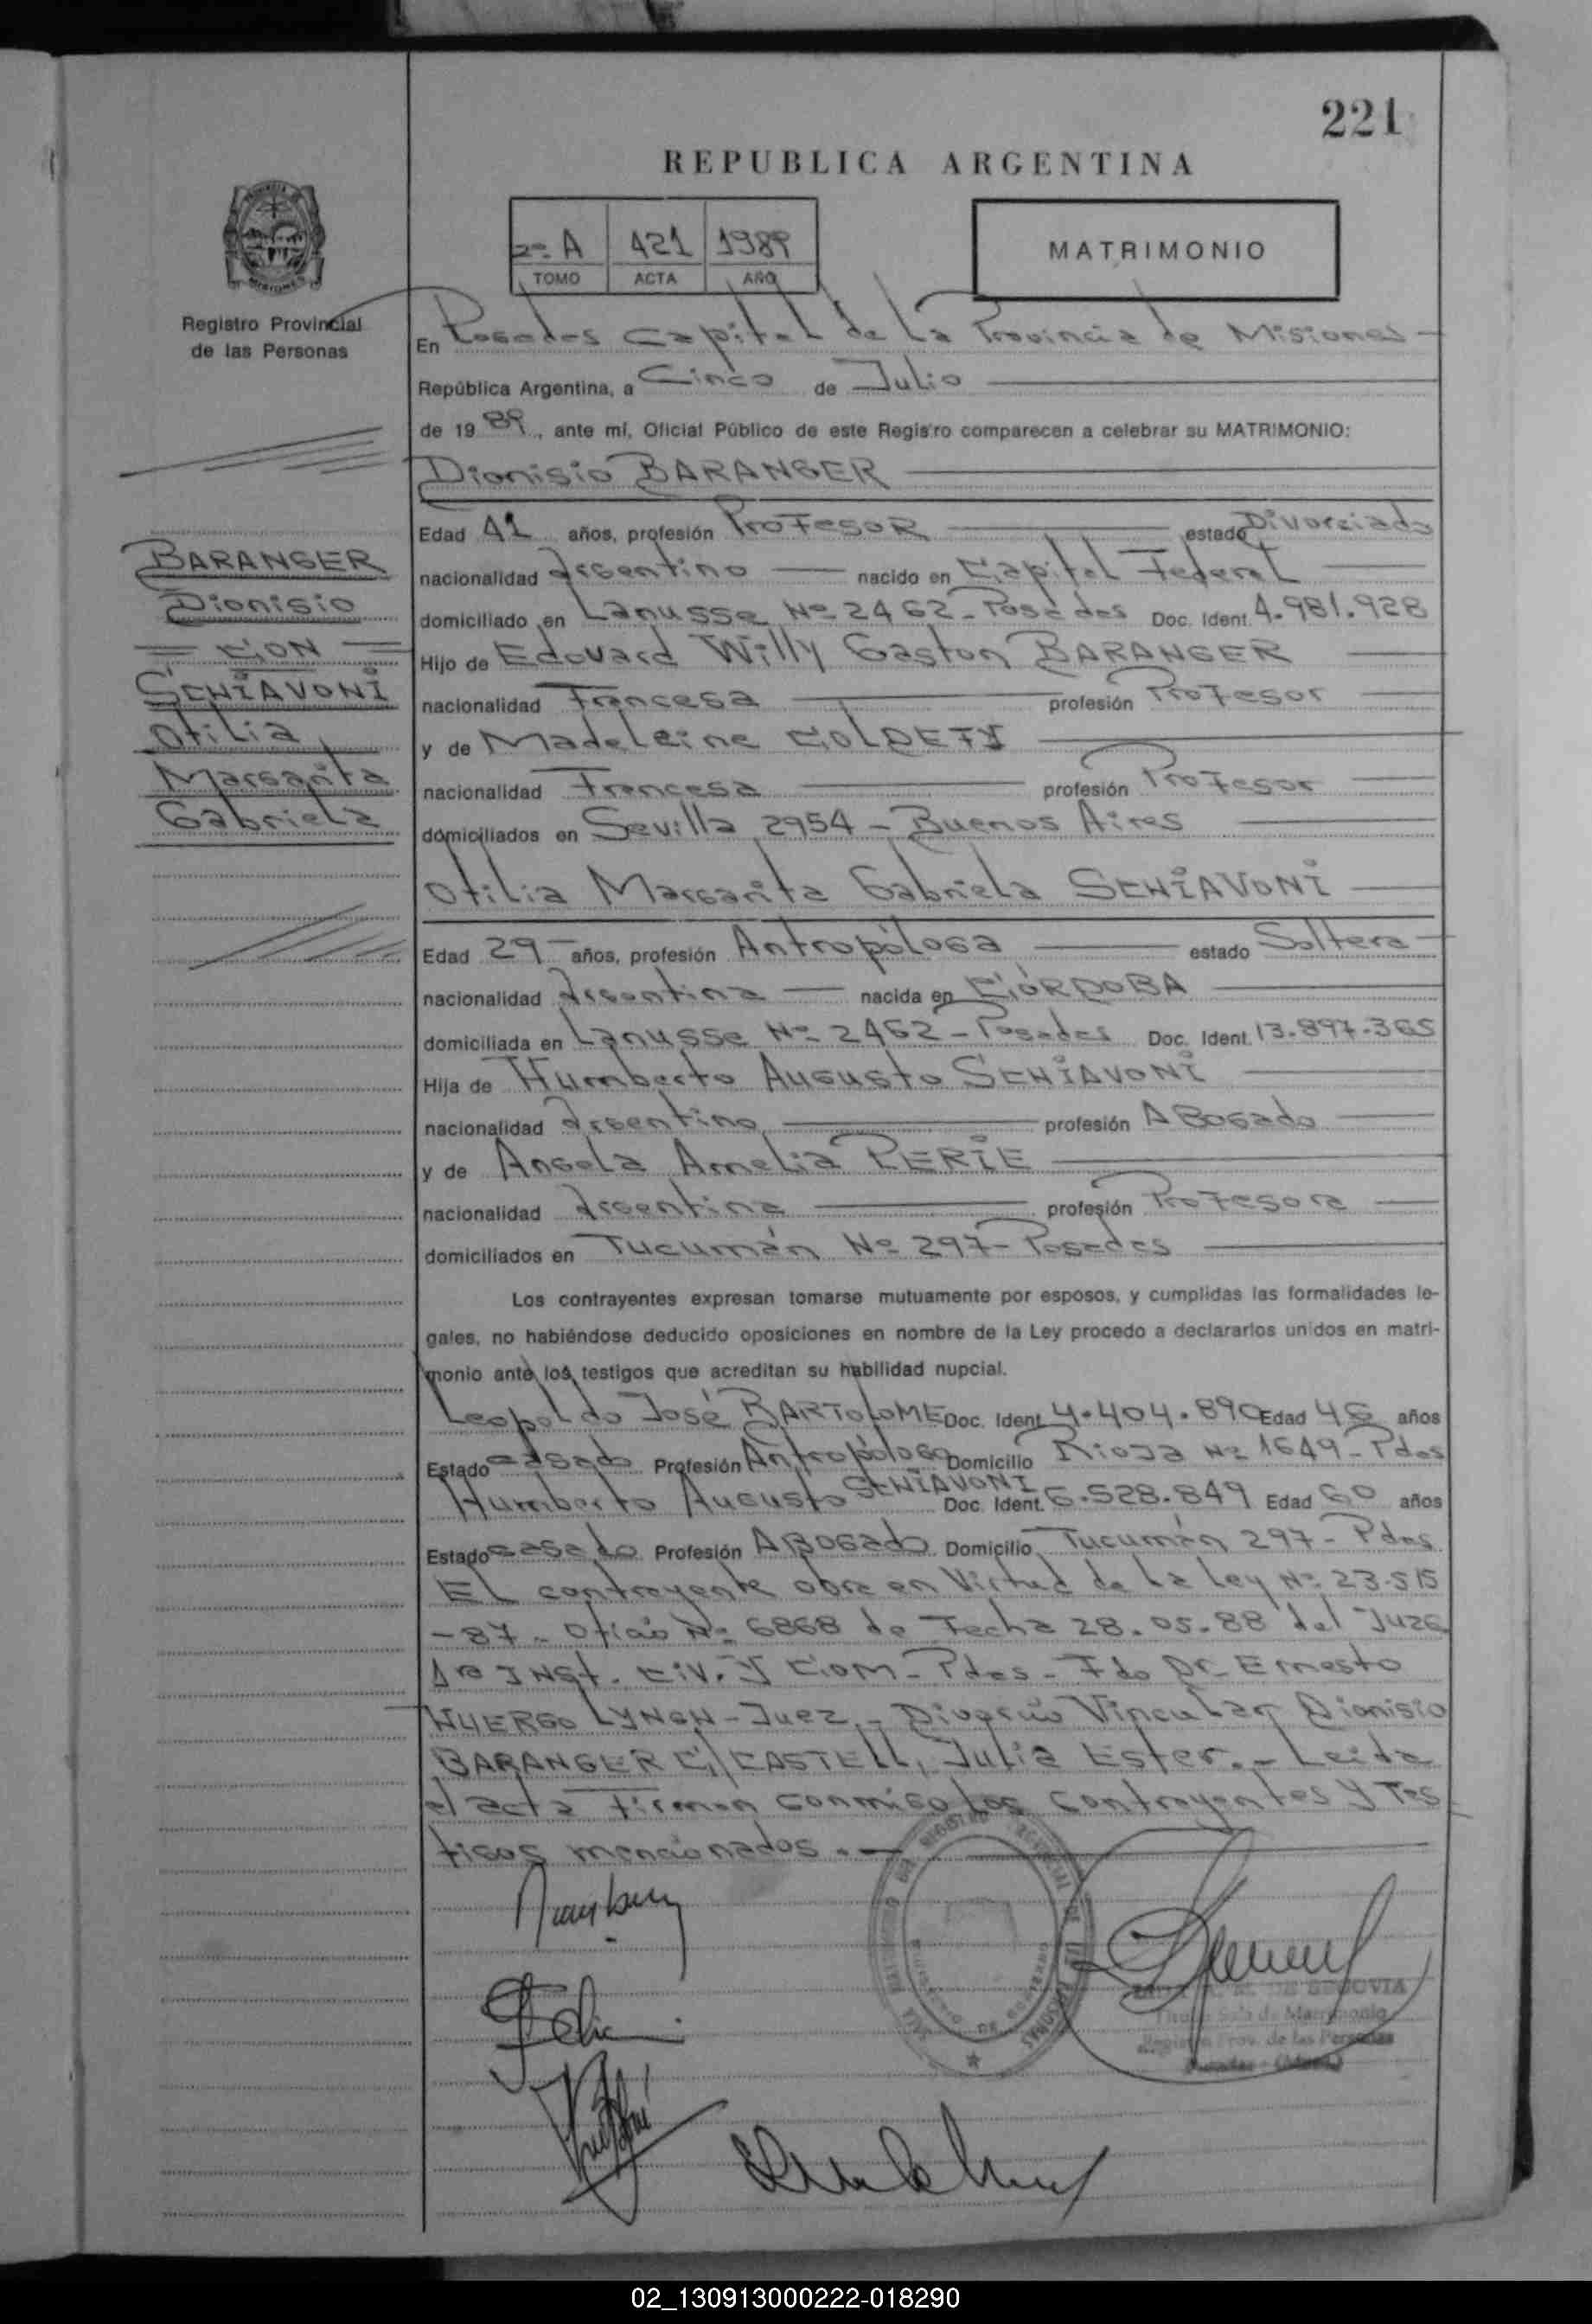 221
REPUBLICA ARGENTINA
2º A 421 1989
TOMO ACTA AÑO
MATRIMONIO
Registro Provincial
de las Personas
En Posadas Capital de La Provincia de Misiones
República Argentina, a Cinco de Julio
de 1989, ante mí, Oficial Público de este Registro comparecen a celebrar su MATRIMONIO:
Dionisio BARANGER
Edad 41 años, profesión Profesor estado Divorciado
nacionalidad Argentino nacido en Capital Federal
domiciliado en Lanusse Nº 2462 - Posadas Doc. Ident. 4.981.928
Hijo de Edouard Willy Gaston BARANGER
nacionalidad Francesa profesión Profesor
y de Madeleine
nacionalidad Francesa profesión Profesor
domiciliados en Sevilla 2954 - Buenos Aires
BARANGER
Dionisio
= CON =
SCHIAVONI
Otilia
Margarita
Gabriela
Otilia Margarita Gabriela SCHIAVONI
Edad 29 años, profesión Antropóloga estado Soltera
nacionalidad Argentina nacida en CÓRDOBA
domiciliada en Lanusse Nº 2462 - Posadas Doc. Ident. 13.897.365
Hija de Humberto Augusto SCHIAVONI
nacionalidad Argentino profesión Abogado
y de Angela Amelia PERIE
nacionalidad Argentina profesión Profesora
domiciliados en Tucumán Nº 297 - Posadas
Los contrayentes expresan tomarse mutuamente por esposos, y cumplidas las formalidades le-
gales, no habiéndose deducido oposiciones en nombre de la Ley procedo a declararlos unidos en matri-
monio ante los testigos que acreditan su habilidad nupcial.
Leopoldo José BARTOLOME Doc. Ident. 4.404.890 Edad 46 años
Estado casado Profesión Antropólogo Domicilio Rioja Nº 1649 - Pdas
Humberto Augusto SCHIAVONI Doc. Ident. 6.528.849 Edad 60 años
Estado casado Profesión Abogado Domicilio Tucumán 297 - Pdas
El contrayente obra en Virtud de La Ley Nº 23.515
-87- Oficio Nº 6868 de Fecha 28.05.88 del Juzg
1ra Inst. Civ. y Com - Pdas - Fdo Dr Ernesto
HUERGO LYNCH - Juez - Divorcio Vincular Dionisio
BARANGER C/CASTELL, Julia Ester. - Leida
el acta firman conmigo Los contrayentes y Tes
tigos mencionados. -
DE SEGOVIA
Sala de Matrimonio
Registro Prov. de las Personas
02_130913000222-018290